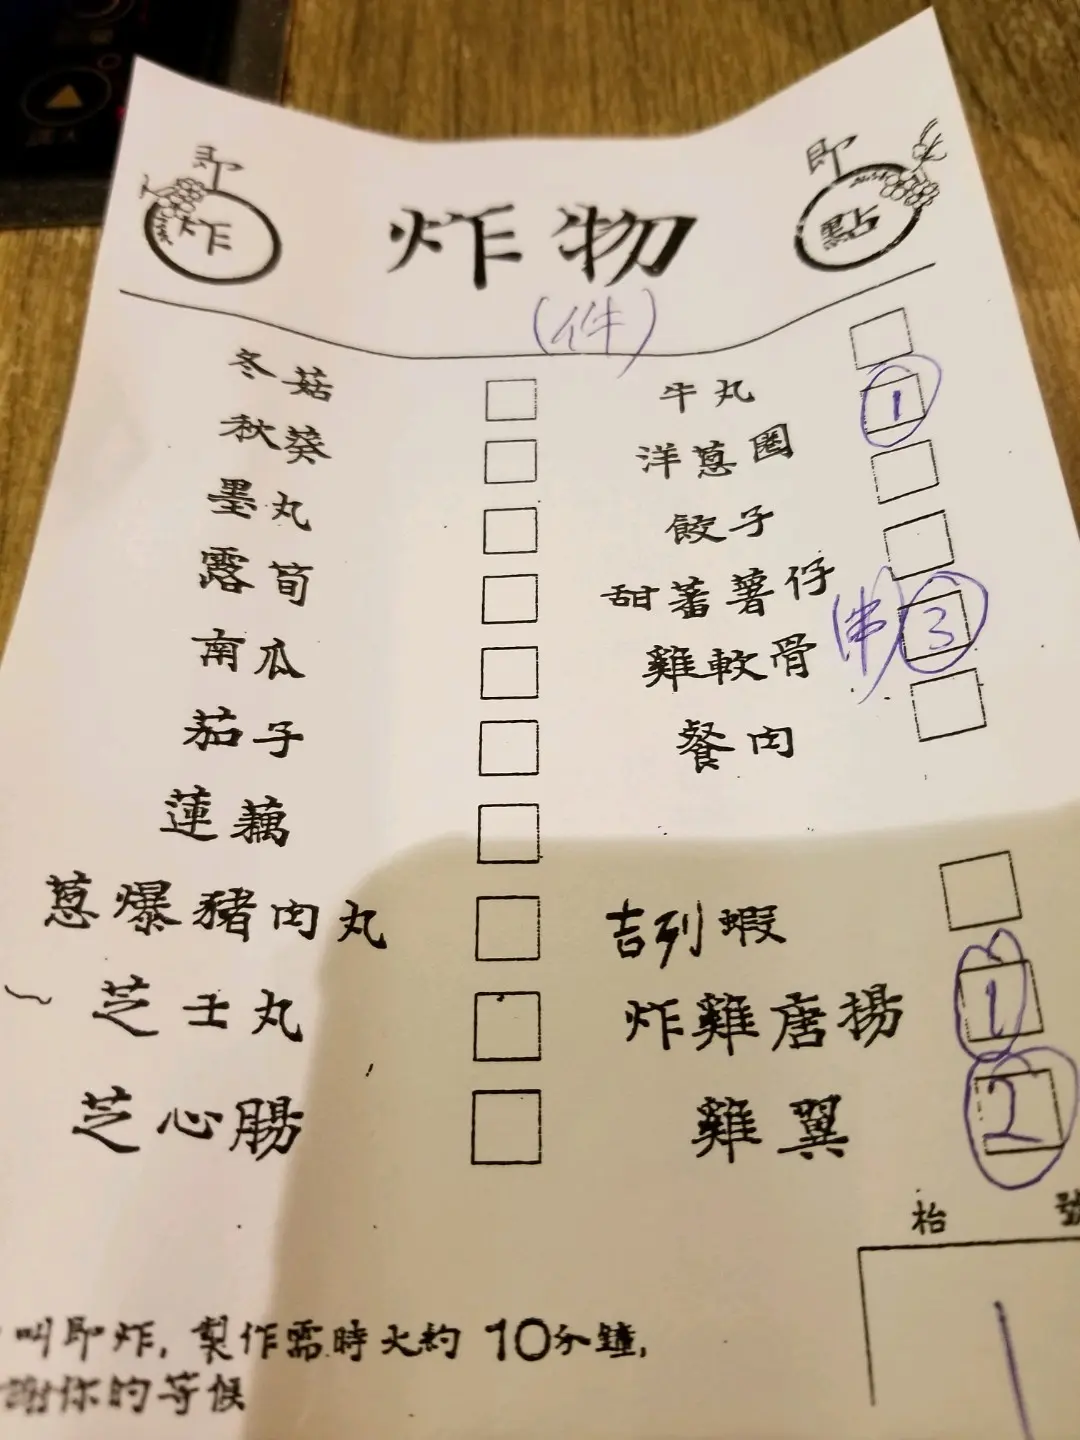 即炸
炸物
即點
(件)
冬菇
秋葵
墨丸
露荀
南瓜
茄子
蓮藕
蔥爆豬肉丸
芝士丸
芝心腸
牛丸
洋蔥圈 1
餃子
甜蕃薯仔
雞軟骨 (串) 3
餐肉
吉列蝦
炸雞唐揚 1
雞翼 2
枱號
1
叫即炸,製作需時大約10分鐘,
謝你的等候